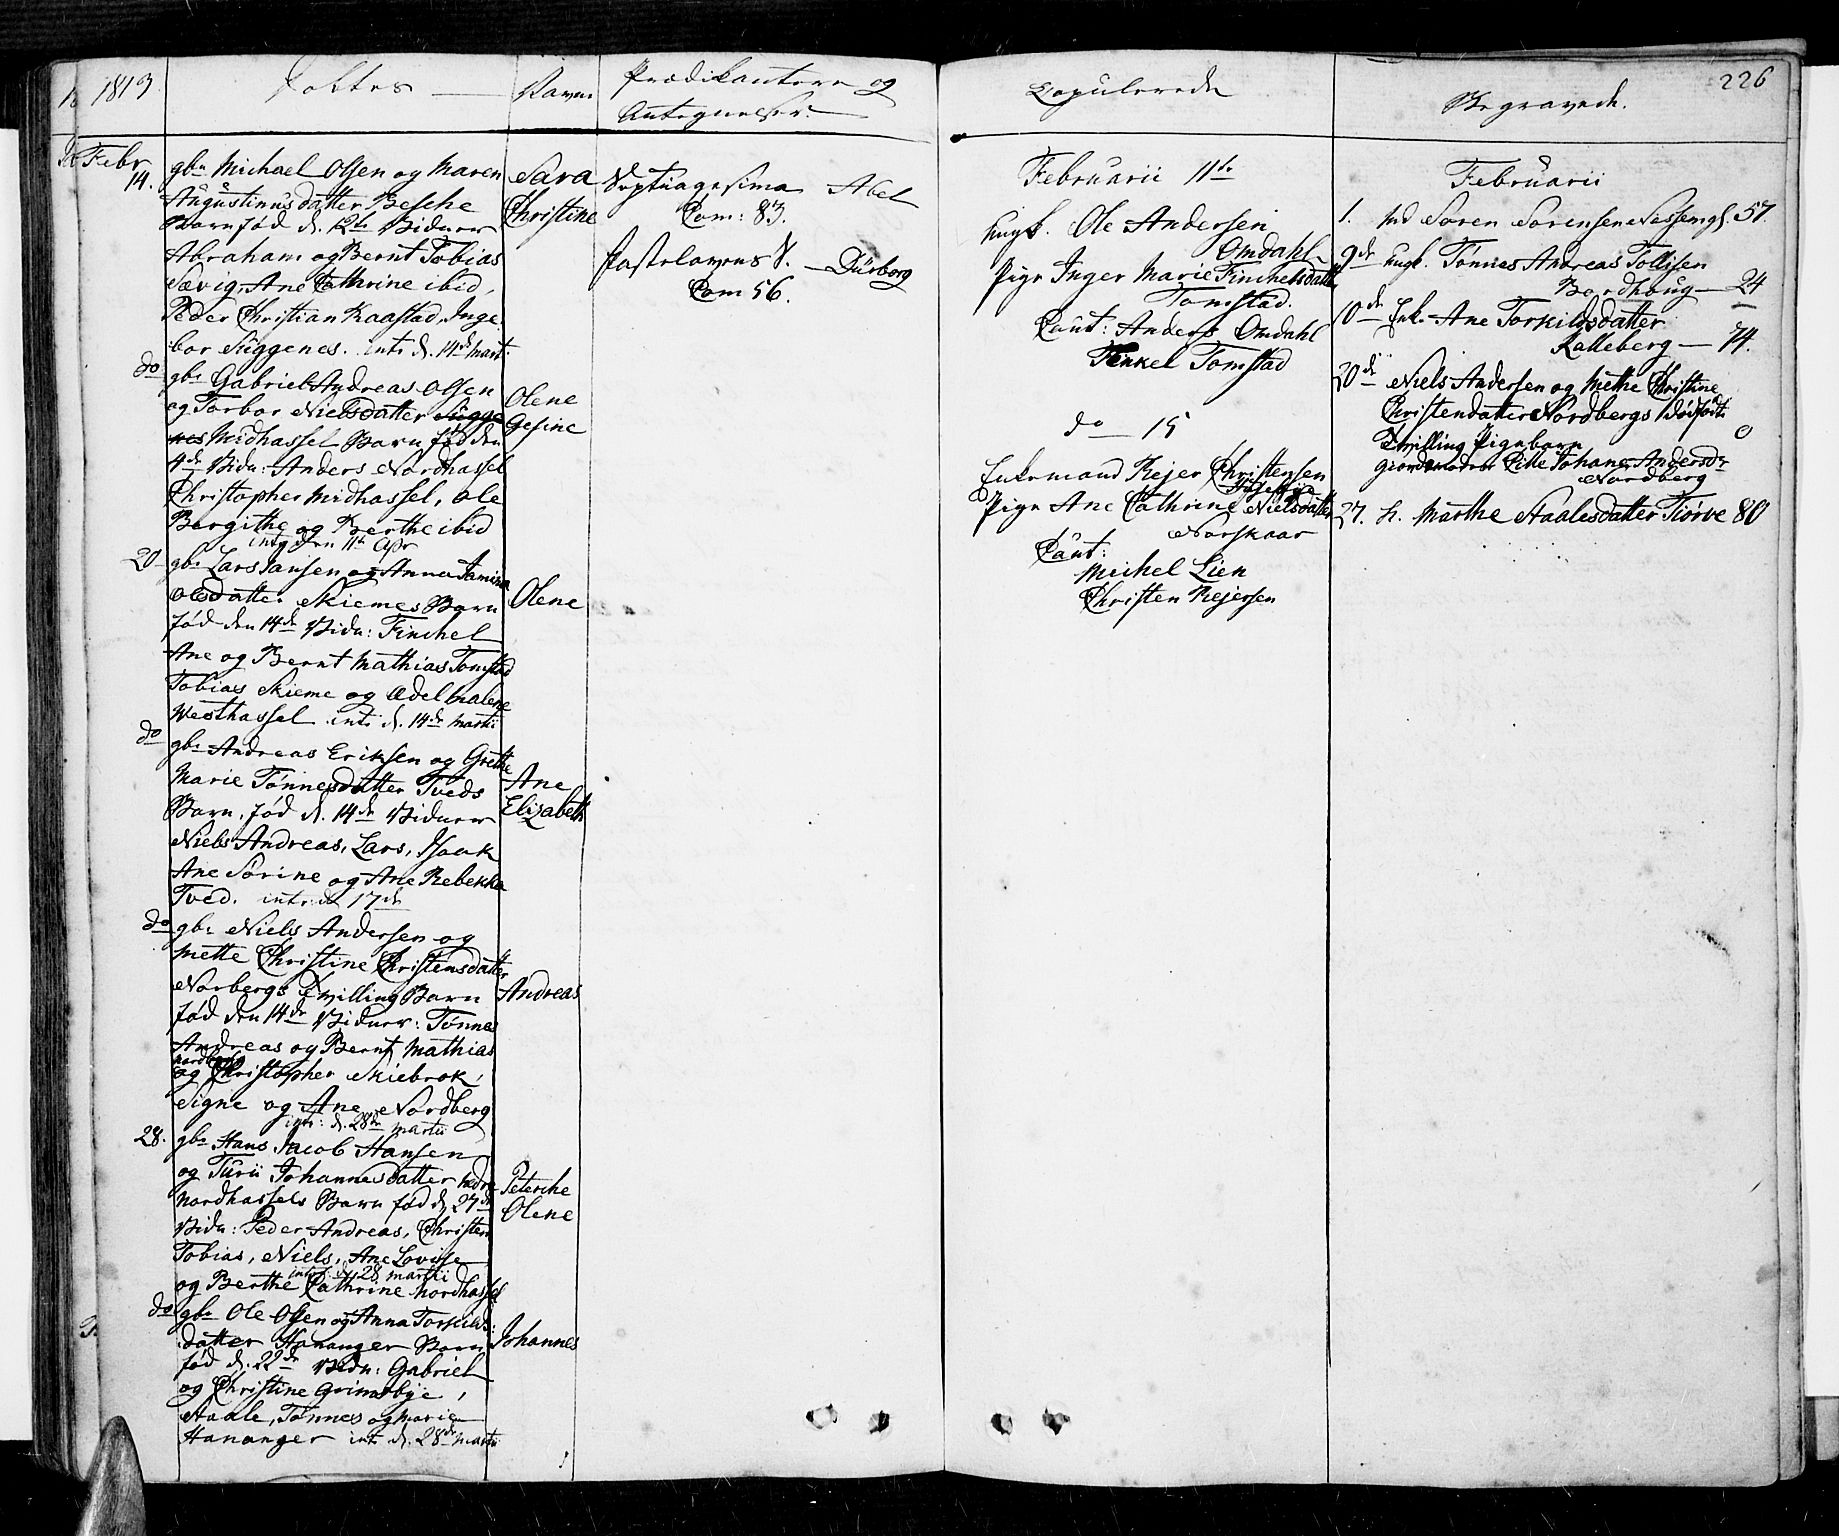 1813.
Døbtes
Navne
Prædikantere og
Antegnelser.
Febr
14.
gbn Michael Olsen og Maren
Augustinusdatter Besche
Barn fød d. 12te Vidner
Abraham og Bernt Tobias
Sævig, Ane Cathrine ibid,
Peder Christian Raastad, Inge
bor Siiggenes. intr d. 14de Marti
Sara
Christine
Septuagesima Abel
Com: 83.
Fastelavens S. Dürborg
Com 56.
do
gbn Gabriel Andreas Olsen
og Torbor Nielsdatter Sügge
nes Midhassel Barn fød den
4de Vidn: Anders Nordhassel
Christopher Midhassel, Ole
Borgithe og Berthe ibid
intr den 11te Apr
Olene
Gesine
20
gbn Lars Jansen og Anna Tamina
Olsdatter Skiemes Barn
fød den 14de Vidn: Finchel
Ane og Bernt Mathias Tomstad
Tobias Skieme og Ædel Malene
Westhassel intr d. 14de Martii
Olene
do
gbn Andreas Eriksen og Grethe
Marie Tønnesdatter Tveds
Barn, fød d. 14de Vidner
Niels Andreas, Lars, Isaak
Ane Sørine og Ane Rebekka
Tved. intr d 17de
Ane
Elizabeth
do
gbn Niels Andersen og
Mette Christine Christensdatter
Norbergs Tvilling Barn
fød den 14de Vidner: Tønnes
Andreas og Bernt Mathias
Nordberg
og Christopher Skiebrok,
Signe og Ane Nordberg
intr: d. 28de Martii
Andreas
28.
gbn Hans Jacob Hansen
og Turii Johannesdatter Nedre
Nordhassels Barn fød d 27de
Vidn: Peder Andreas, Christen
Tobias, Niels, Ane Lovisse
intr: d 28 Martii
og Berthe Cathrine Nordhassel
Peterche
Olene
do
gbn Ole Olsen og Anna Torkilds
datter Hananger Barn
fød d. 22de Vidn: Gabriel
og Christine Grimsbye,
Aaale, Tønnes og Marie
Hananger intr d. 28de Martii
Johannes
Copulerede
Februarii 11te
Ungk. Ole Andersen
Omdahl
Pige Inger Marie Finchelsdatter
Tomstad.
Caut: Anders Omdahl
Finkel Tomstad
do 15
Enkemand Rejer Christensen
Pige Ane Cathrine Nielsdatter
Norskaar
Caut:
Michel Lien
Christen Rejersen
226
Begravede.
Februarii
1. Ind Soren Sorensen Nessemgl. 57.
9de Ungk. Tønnes Andreas Tollisen
Bordhoug 24
10de Enk. Ane Torkildsdatter
Kalleberg 74.
20de Niels Andersen og Methe Christine
Christendatter Nordbergs dødfødt
Tvilling Pigebarn 0
Giordemoder Cille Johane Andersdr
Nordberg
27. h. Marthe Aaalesdatter Tiørve 80